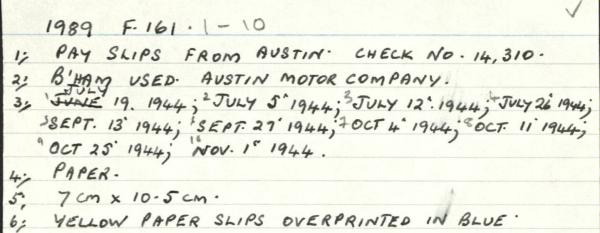 1989 F.161.1-10
1; PAY SLIPS FROM AUSTIN. CHECK NO. 14,310.
2; B'HAM USED. AUSTIN MOTOR COMPANY.
JULY
3; 1 JUNE 19. 1944; 2 JULY 5" 1944; 3 JULY 12". 1944; 4 JULY 26" 1944;
5 SEPT. 13" 1944; 6 SEPT. 27" 1944; 7 OCT 4" 1944; 8 OCT. 11" 1944;
9 OCT 25" 1944; 10 NOV. 1st 1944.
4; PAPER.
5; 7cm x 10.5cm.
6; YELLOW PAPER SLIPS OVERPRINTED IN BLUE.